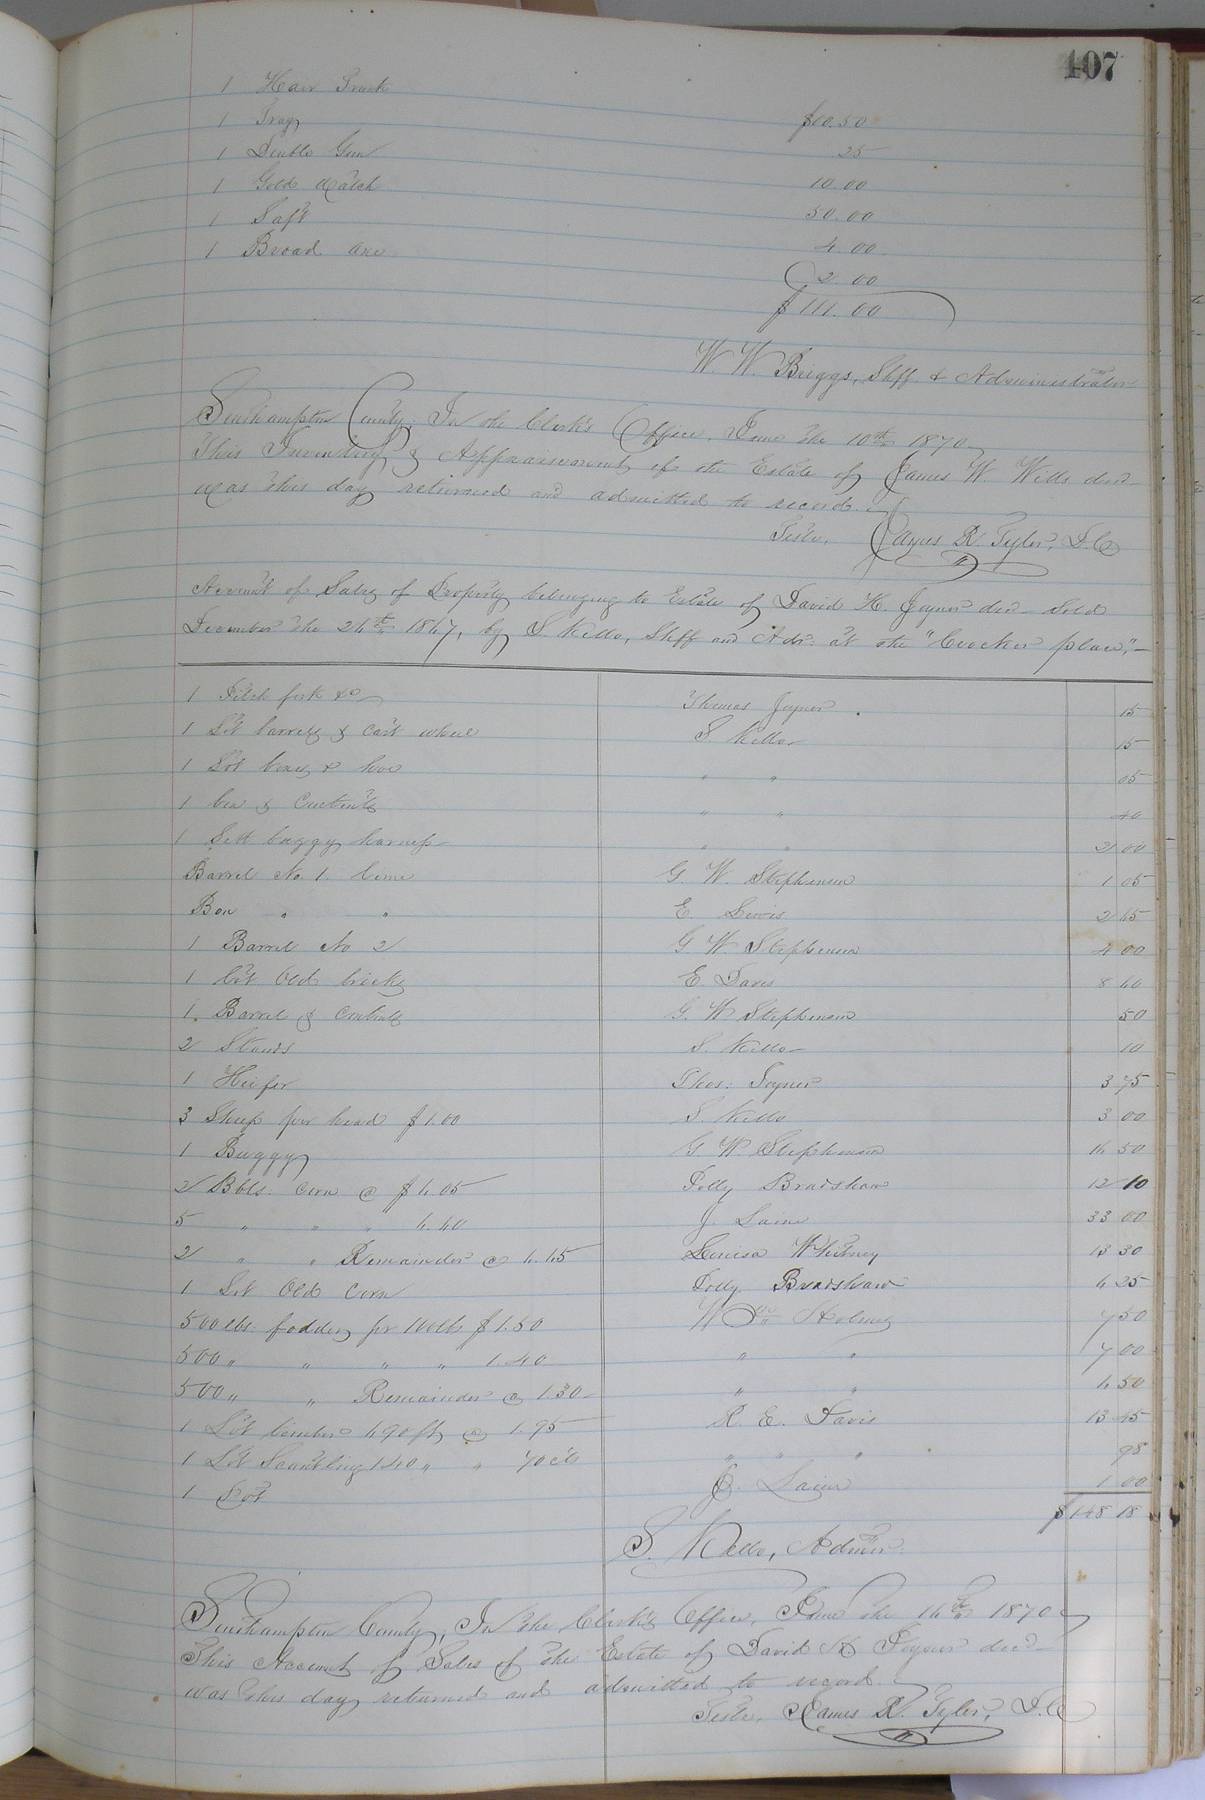 107
1 Hair Trunk $10.50
1 Tray 25
1 Double Gun 10.00
1 Gold Watch 50.00
1 Safe 4.00
1 Broad axe 2.00
$111.00
W. W. Briggs, Shff. & Administrator
Southampton County, In the Clerk's Office, June the 10th 1870
This Inventory & Appraisement of the Estate of James W. Wills decd
was this day returned and admitted to record.
Teste, James R. Tyler, D.C.
Account of Sales of Property belonging to Estate of David H. Joyner dec Sold
December the 24th 1867, by S. Kello, Shff and Adr. at the "Crocker place",
1 Pitch fork &c Thomas Joyner 15
1 Lot barrels & cart wheel S. Kello 15
1 Lot boxes & hoe " " 05
1 box & Contents " " 40
1 Sett buggy harness " " 2 00
Barrel No. 1. Lime G. W. Stephenson 1 05
Box " " E. Lewis 2 65
1 Barrel No 2 G W. Stephenson 4 00
1 Lot Old bricks E. Davis 8 60
1. Barrel & Contents G. W Stephenson 50
2 Stands S. Kello 10
1 Heifer Thos: Joyner 3 75
3 Sheep per head $1.00 S. Kello 3 00
1 Buggy G W Stephenson 16 50
2 Bbls. corn @ $6.05 Polly Bradshaw 12 10
5 " " " 6.60 J. Laine 33 00
2 " " Remainder @ 6.65 Louisa Whitney 13 30
1 Lot Old Corn Polly Bradshaw 6 25
500 lbs. fodder, pr 100 lbs $1.50 Wm Holmes 7 50
500 " " " " 1.40 " " 7 00
500 " " Remainder @ 1.30 " " 6 50
1 Lot timber 690 ft, @ 1.95 R. E. Davis 13 45
1 Lot Scantling 140 " " 70 cts " " " 98
1 Pot J. Laine 1 00
$148 18
S. Kello, Admr.
Southampton County, In the Clerk's Office, June the 16th 1870
This Account of Sales of the Estate of David H Joyner decd
was this day returned and admitted to record
Teste, James R. Tyler, D.C.